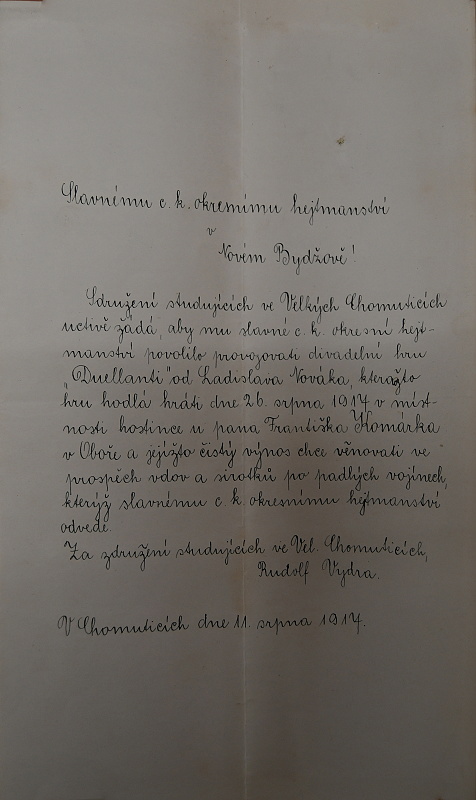 Slavnému c. k. okresnímu hejtmanství
v
Novém Bydžově!
Sdružení studujících ve Velkých Chomuticích
uctivě žádá, aby mu slavné c. k. okresní hejt-
manství povolilo provozovati divadelní hru
„Duellanti" od Ladislava Nováka, kteražto
hru hodlá hráti dne 26. srpna 1917 v míst-
nosti hostince u pana Františka Komárka
v Oboře a jejížto čistý výnos chce věnovati ve
prospěch vdov a sirotků po padlých vojínech,
kterýž slavnému c. k. okresnímu hejtmanství
odvede.
Za združení studujících ve Vel. Chomuticích,
Rudolf Vydra.
V Chomuticích dne 11. srpna 1917.